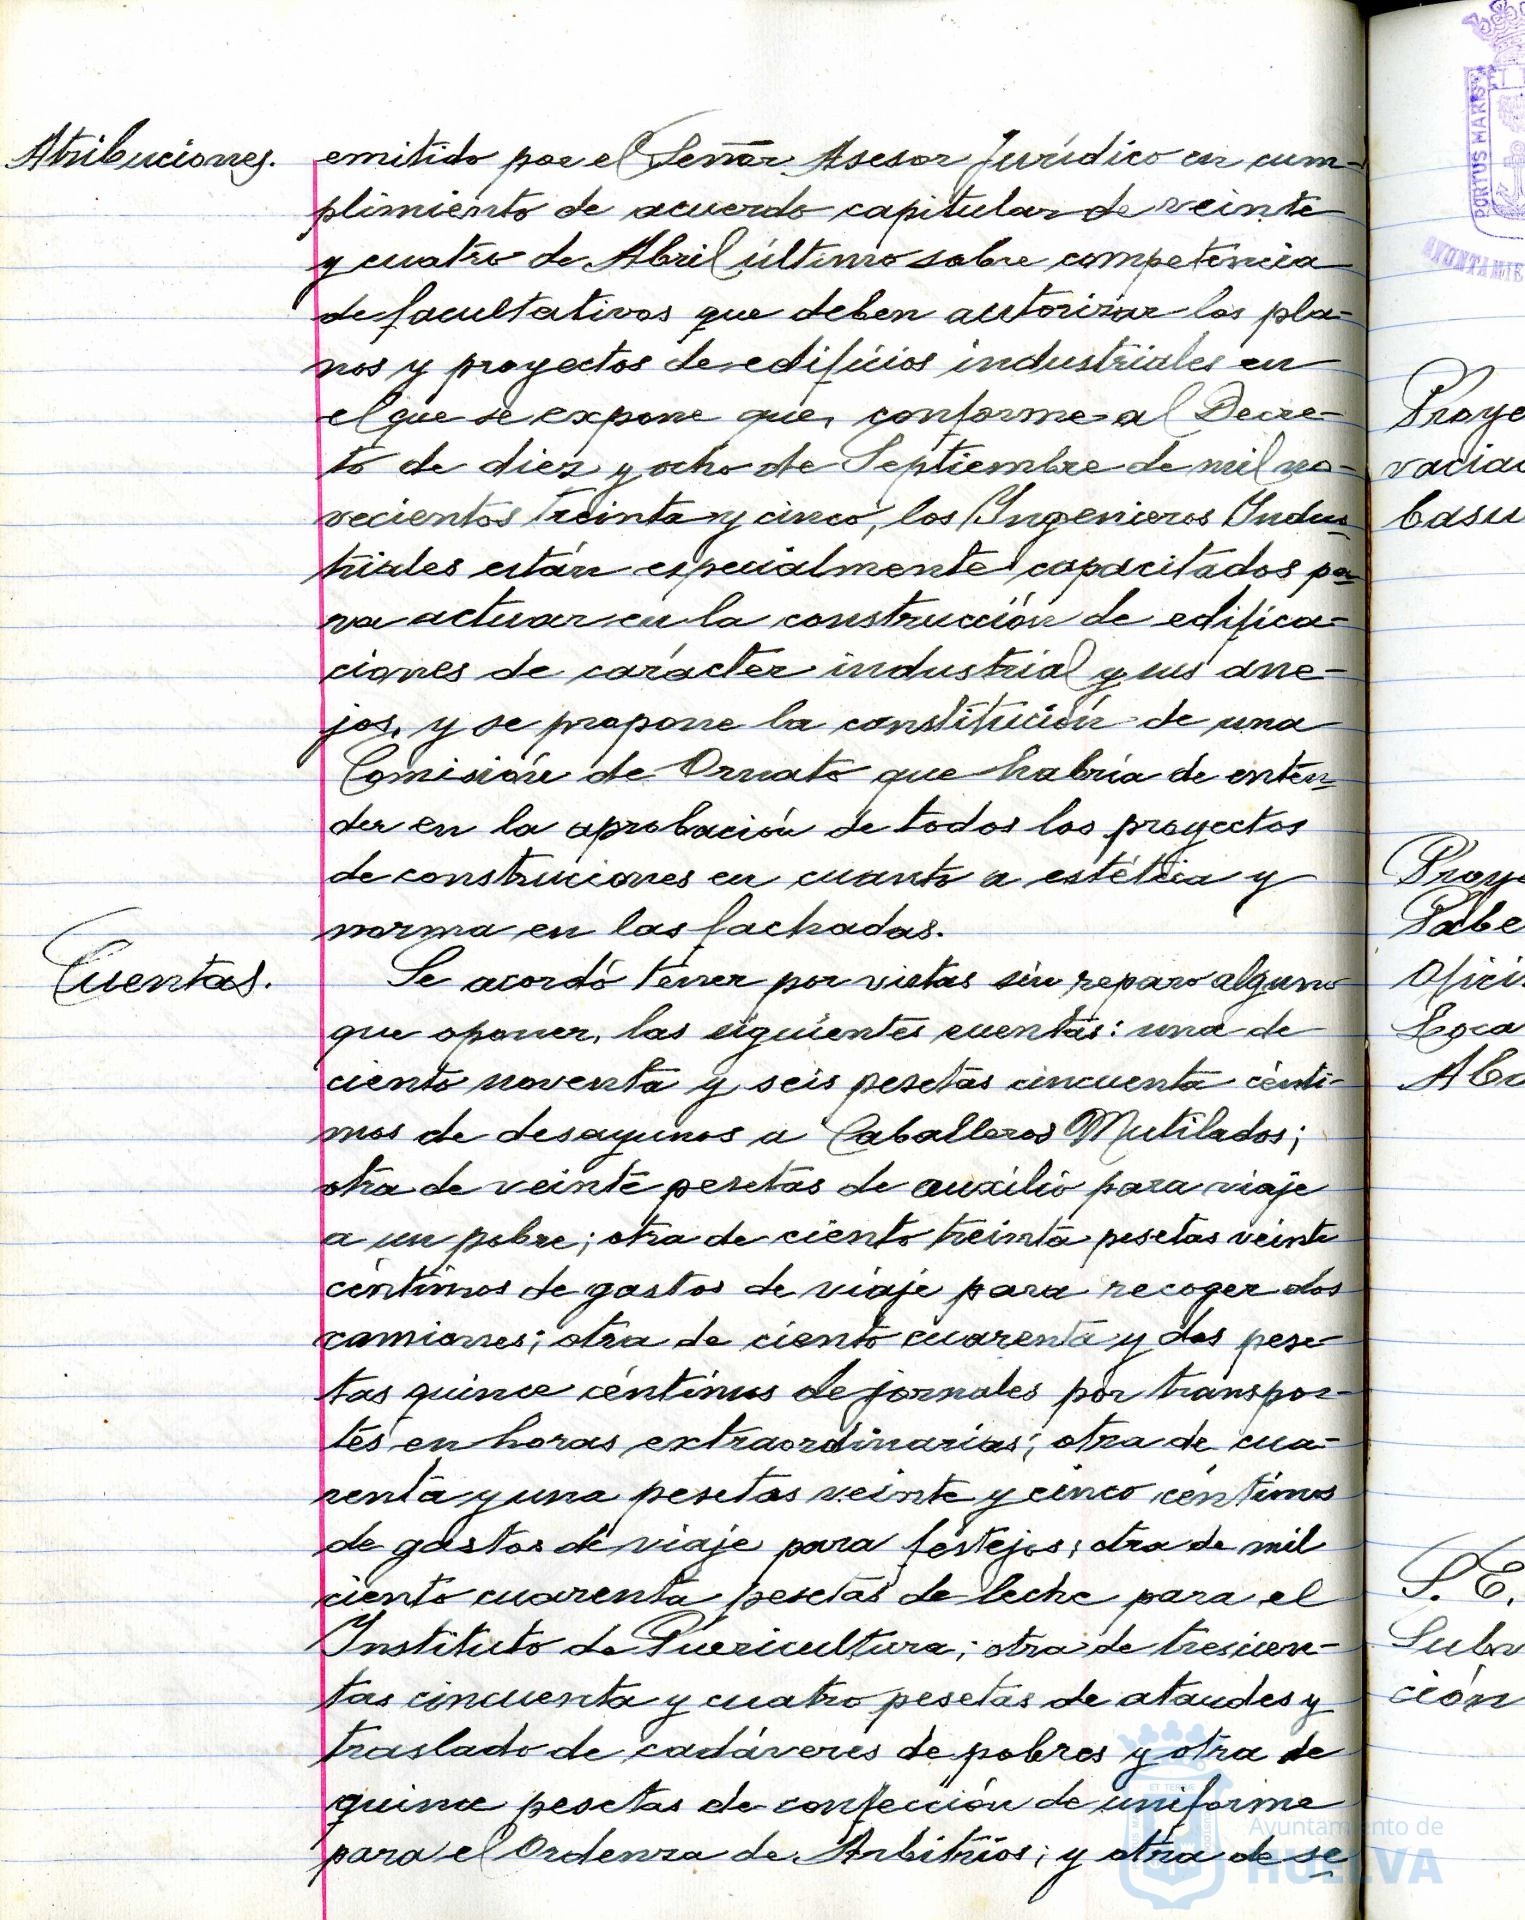 Atribuciones.
emitido por el Señor Asesor Jurídico en cum-
plimiento de acuerdo capitular de veinte
y cuatro de Abril último sobre competencia
de facultativos que deben autorizar los pla-
nos y proyectos de edificios industriales en
el que se expone que, conforme al Decre-
to de diez y ocho de Septiembre de mil no-
vecientos treinta y cinco, los Ingenieros Indus-
triales están especialmente capacitados pa-
ra actuar en la construcción de edifica-
ciones de carácter industrial y sus ane-
jos, y se propone la constitución de una
Comisión de Ornato que habría de enten-
der en la aprobación de todos los proyectos
de construciones en cuanto a estética y
norma en las fachadas.
Cuentas.
Se acordó tener por vistas sin reparo alguno
que oponer, las siguientes cuentas: una de
ciento noventa y seis pesetas cincuenta cénti-
mos de desayunos a Caballeros Mutilados;
otra de veinte pesetas de auxilio para viaje
a un pobre; otra de ciento treinta pesetas veinte
céntimos de gastos de viaje para recoger dos
camiones; otra de ciento cuarenta y dos pese-
tas quince céntimos de jornales por transpor-
tes en horas extraordinarias; otra de cua-
renta y una pesetas veinte y cinco céntimos
de gastos de viaje para festejos; otra de mil
ciento cuarenta pesetas de leche para el
Instituto de Puericultura; otra de trescien-
tas cincuenta y cuatro pesetas de ataudes y
traslado de cadáveres de pobres y otra de
quince pesetas de confección de uniforme
para el Ordenza de Arbitrios; y otra de se
Ayuntamiento de
HUELVA
PORTUS MARIS
ET
AYUNTAMIE
Proye
vacia
basu
Proye
Pabe
Ofici
Loca
Aba
S. E.
Subv
ción